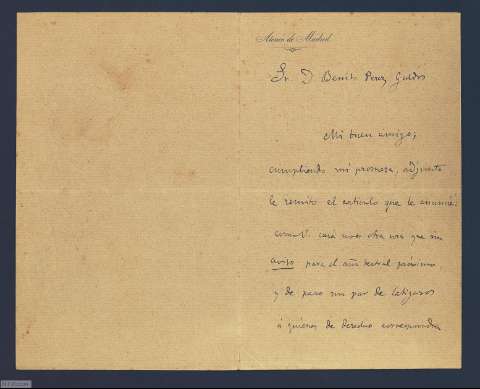 Ateneo de Madrid
Sr. D. Benito Perez Galdós
Mi buen amigo;
cumpliendo mi promesa, adjunto
le remito el artículo que le anuncié.
como V. verá no es otra cosa que un
aviso para el año teatral próximo,
y de paso un par de latigazos
á quienes de derecho corresponda